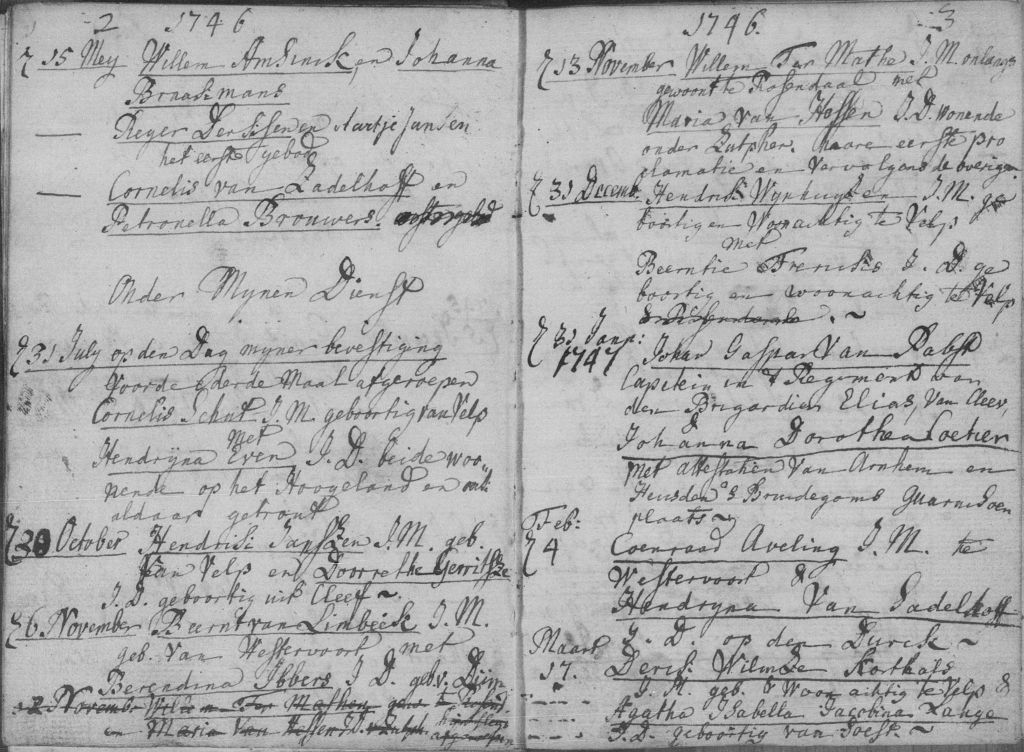 2 1746
15 Mey Willem Amsinck, en Johanna
Braakmans
Reyer Derksen en Aartje Jansen
het eerste gebod
Cornelis van Zadelhoff en
Petronella Brouwers.
Onder Mynen Dienst
31 July op den Dag myner bevestiging
Voorde Eerde Maal afgeroepen
Cornelis Schut J. M. geboortig van Velp
Met
Hendryna Even J. D. beide woo-
nende op het Hoogeland en
aldaar getrout
30 October Hendrik Janssen J. M. geb.
van Velp en Doorrethe Gerritsze
J. D. geboortig uit Cleef ~.
6. November Beernt van Limbeek J. M.
geb. van Westervoort met
Berendina Ibbers J D. geb. v.
November Willem Ter Mathen
en Maria Van Hessen J. D. v. Zutph.
1746. 3
13 November Willem Ter Mathe J. M. onlangs
gewoont te Rosendaal met
Maria van Hessen J. D. wonende
onder Zutphen. haare eerste pro
clamatie en vervolgens de overige
31 Decemb. Hendrik Wynhuysen J. M. ge
boortig en Woonachtig te Velp
met
Beerntie Freriks J. D. ge
boortig en woonachtig te Velp
31 Jann:
1747 Johan Gaspar Van Pabst
Capitein in 't Regiment van
den Brigardier Elias, Van Cleev,
Johanna Dorothea Coetier
Met attestatien Van Arnhem en
Heusden Bruidegoms Guarnisoen
plaats ~
Feb:
4 Coenraad Aveling J. M. te
Westervoort &
Hendryna Van Sadelhoff
J. D. op den Dyrck ~
Maart
17. Derck Wilmse Korthals
J. M. geb. & Woonachtig te Velp &
Agatha Isabella Jacobina Lange
J. D. geboortig van Soest. ~